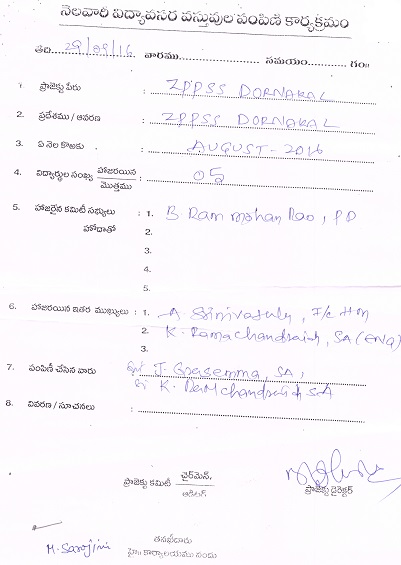 నెలవారీ విద్యావసర వస్తువుల పంపిణి కార్యక్రమం
తేది 29/09/16 వారము ............ సమయం ............ గం॥
1. ప్రాజెక్టు పేరు : ZPPSS DORNAKAL
2. ప్రదేశము / ఆవరణ : ZPPSS DORNAKAL
3. ఏ నెల కొఱకు : AUGUST - 2016
4. విద్యార్థుల సంఖ్య హాజరయిన / మొత్తము : 05
5. హాజరైన కమిటీ సభ్యులు : 1. B. Ram mohan Rao, PD
హోదాతో 2.
3.
4.
5.
6. హాజరయిన ఇతర ముఖ్యులు : 1. A Srinivasulu, I/c HM
2. K. Ramachandraiah, SA (ENG)
3.
7. పంపిణీ చేసిన వారు : T. Grasemma, SA,
K. Ramchandraiah SA
8. వివరణ / సూచనలు :
ప్రాజెక్టు కమిటీ చైర్‌మెన్,
ప్రాజెక్టు డైరెక్టర్
M. Sarojini